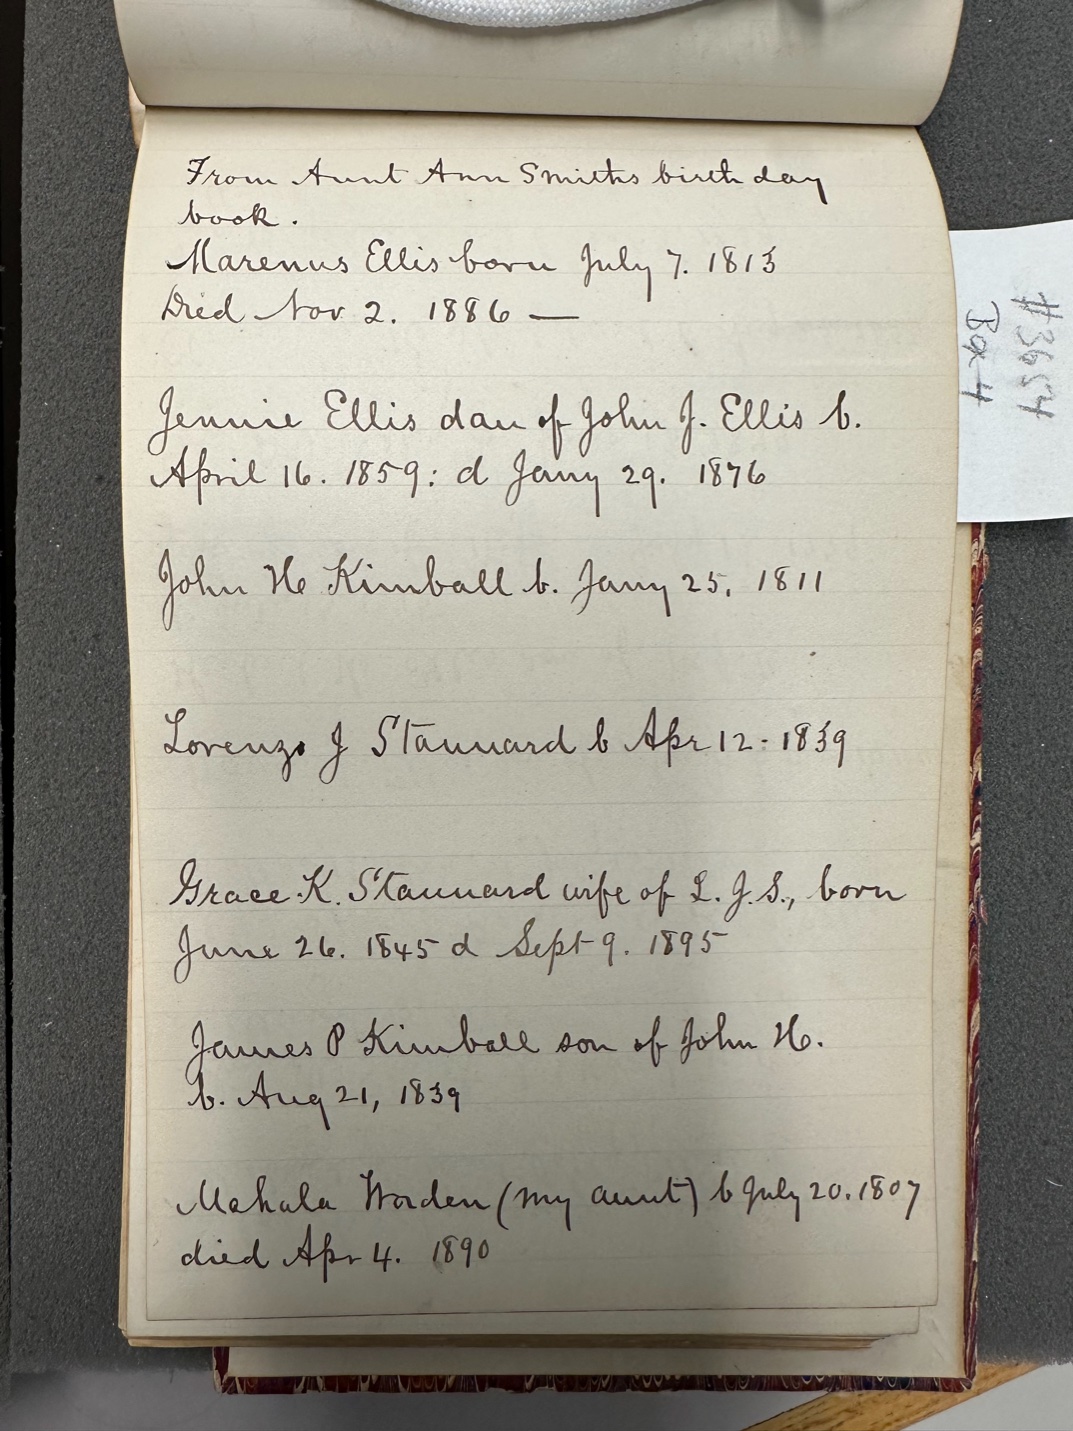 From Aunt Ann Smiths birth day
book.
Marenus Ellis born July 7. 1813
Died Nov 2. 1886 —
Jennie Ellis dau of John J. Ellis b.
April 16. 1859: d Jany 29. 1876
John H Kimball b. Jany 25, 1811
Lorenzo J Stannard b Apr 12 - 1839
Grace K. Stannard wife of L. J. S., born
June 26. 1845 d Sept 9. 1895
James P Kimball son of John H.
b. Aug 21, 1839
Mahala Worden (my aunt) b July 20. 1807
died Apr 4. 1890
#3654
Box 4